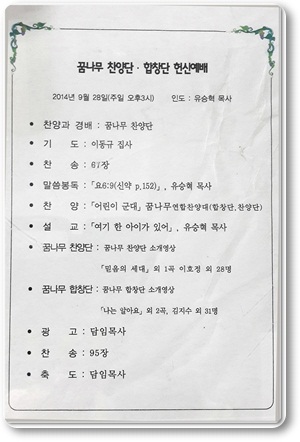 꿈나무 찬양단 · 합창단 헌신예배
2014년 9월 28일(주일 오후3시) 인도 : 유승혁 목사
• 찬양과 경배 : 꿈나무 찬양단
• 기 도 : 이동규 집사
• 찬 송 : 67장
• 말씀봉독 : 「요6:9(신약 p,152)」, 유승혁 목사
• 찬 양 : 「어린이 군대」 꿈나무연합찬양대(합창단,찬양단)
• 설 교 : 「여기 한 아이가 있어」, 유승혁 목사
• 꿈나무 찬양단 : 꿈나무 찬양단 소개영상
「믿음의 세대」 외 1곡 이호정 외 28명
• 꿈나무 합창단 : 꿈나무 합창단 소개영상
「나는 알아요」 외 2곡, 김지수 외 31명
• 광 고 : 담임목사
• 찬 송 : 95장
• 축 도 : 담임목사